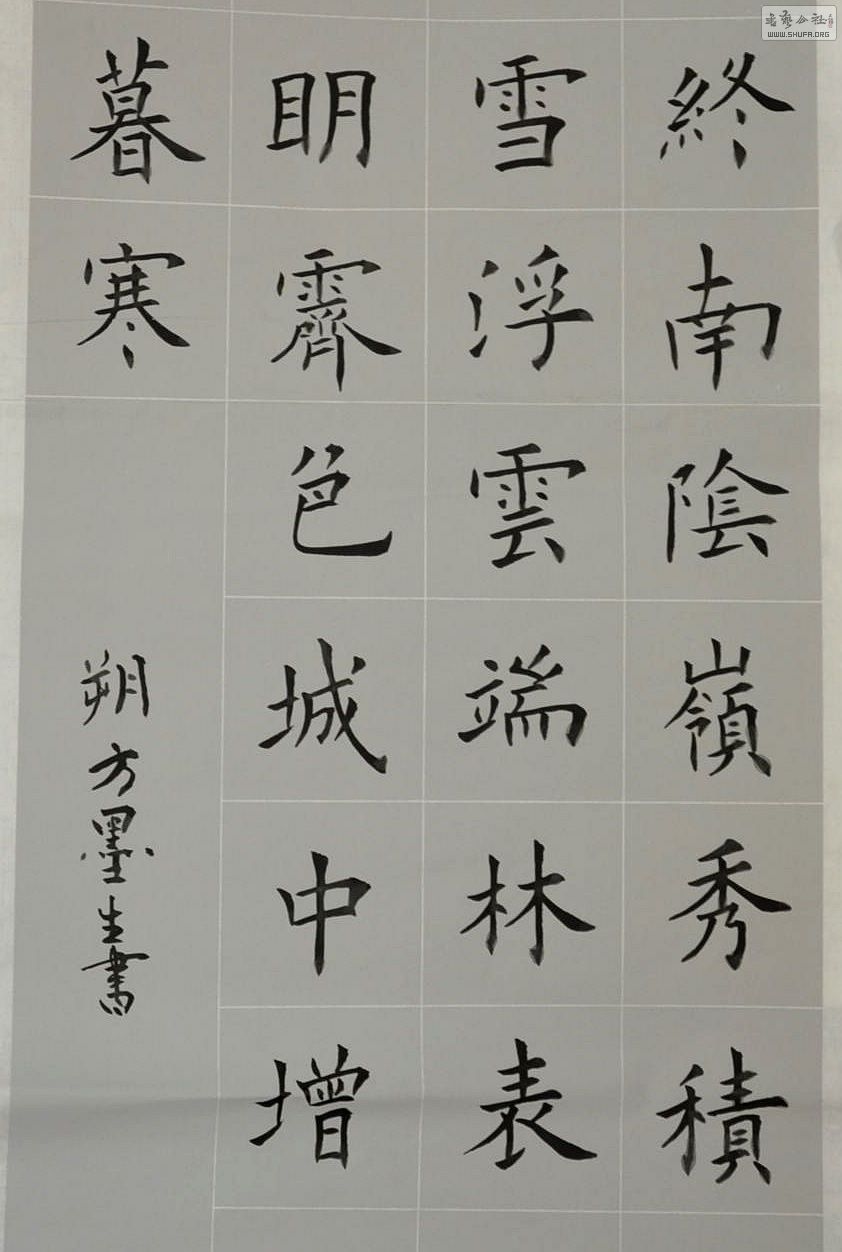 終南陰嶺秀積
雪浮雲端林表
眀霽色城中增
暮寒
朔方墨生書
WWW.SHUFA.ORG